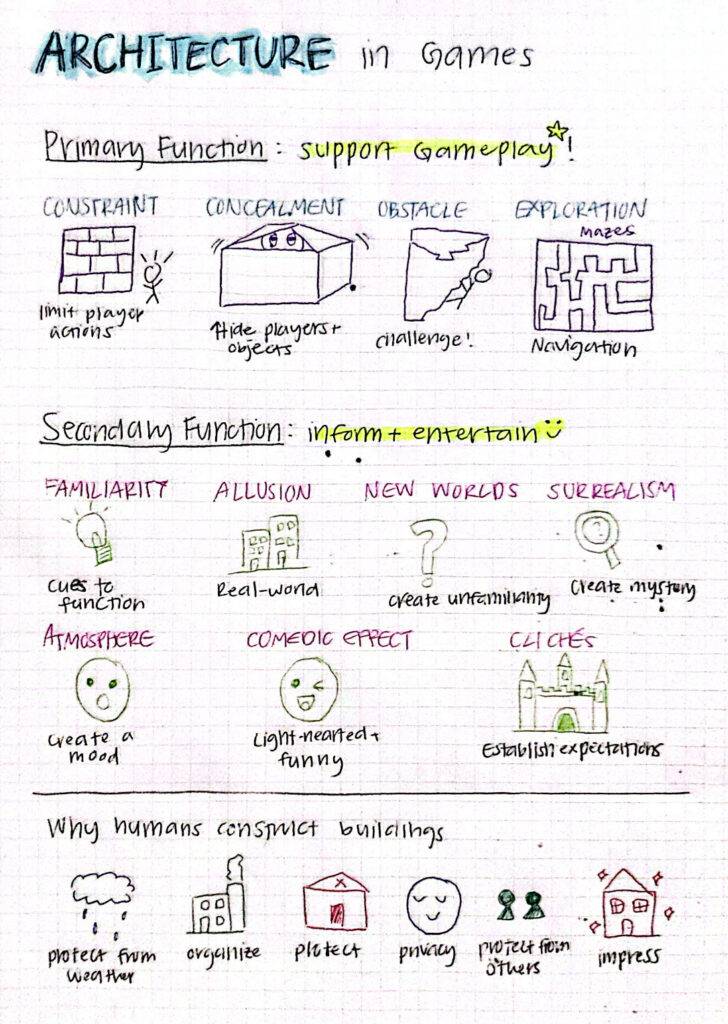 ARCHITECTURE in Games
Primary Function: support Gameplay!
CONSTRAINT
CONCEALMENT
OBSTACLE
EXPLORATION
mazes
limit player
actions
Hide players+
objects
challenge!
Navigation
Secondary Function: inform + entertain
FAMILIARITY
ALLUSION
NEW WORLDS
SURREALISM
?
?
cues to
function
Real-world
create unfamiliarity
create mystery
ATMOSPHERE
COMEDIC EFFECT
CLICHÉS
Create a
mood
Light-hearted +
funny
Establish expectations
Why humans construct buildings
protect from
weather
organize
protect
privacy
protect from
others
impress